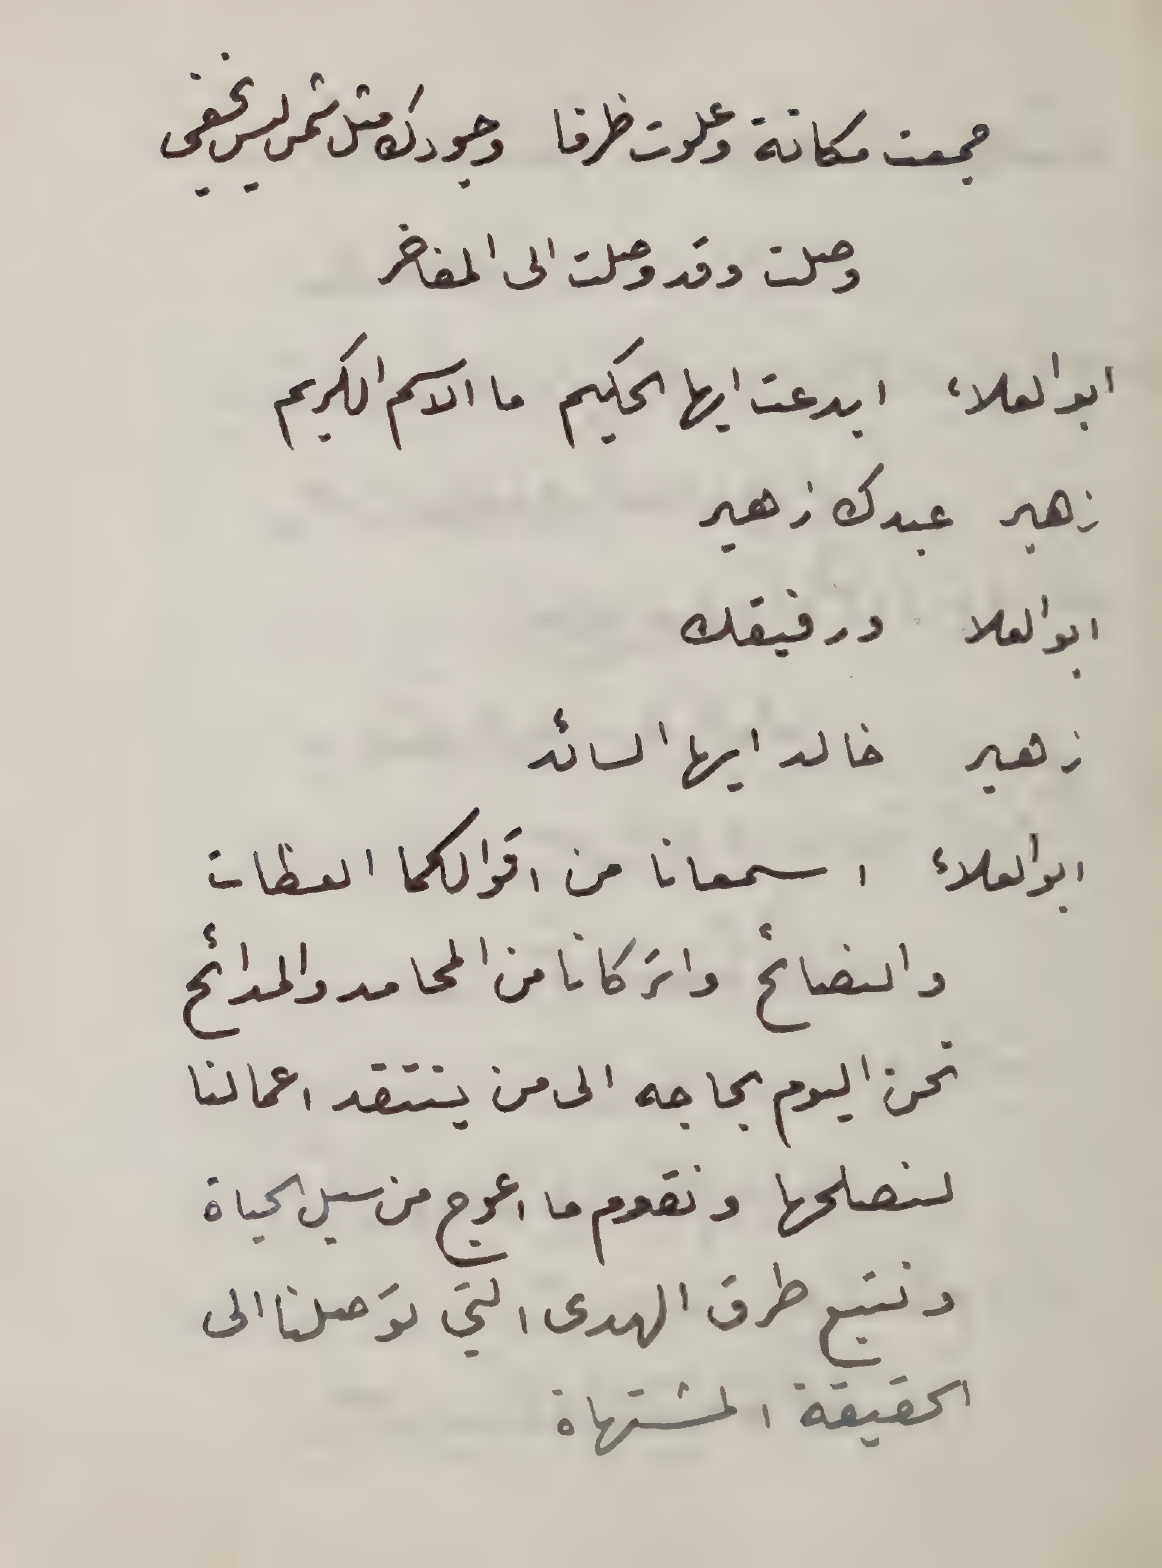 جمعت مكانة وعلوت ظرفا وجودك مثل شمس ليس يخفى
وصلت وقد وصلت الى المفاخر
ابو العلاء ابدعت ايها الحكيم ما الاسم الكريم
زهير عبدك زهير
ابو العلا ورفيقك
زهير خالد ايها السائد
ابو العلاء اسمعانا من اقوالكما العظات
والنصائح واتركانا من المحامد والمدائح
نحن اليوم بحاجه الى من ينتقد اعمالنا
لنصلحها ونقوم ما اعوج من سبل الحياة
ونتبع طرق الهدى التي توصلنا الى
الحقيقة المشتهاة